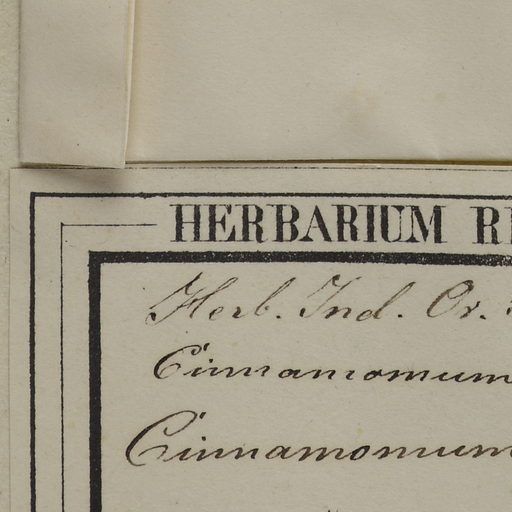 HERBARIUM
Herb. Ind. Or.
Cinnamomum
Cinnamomum